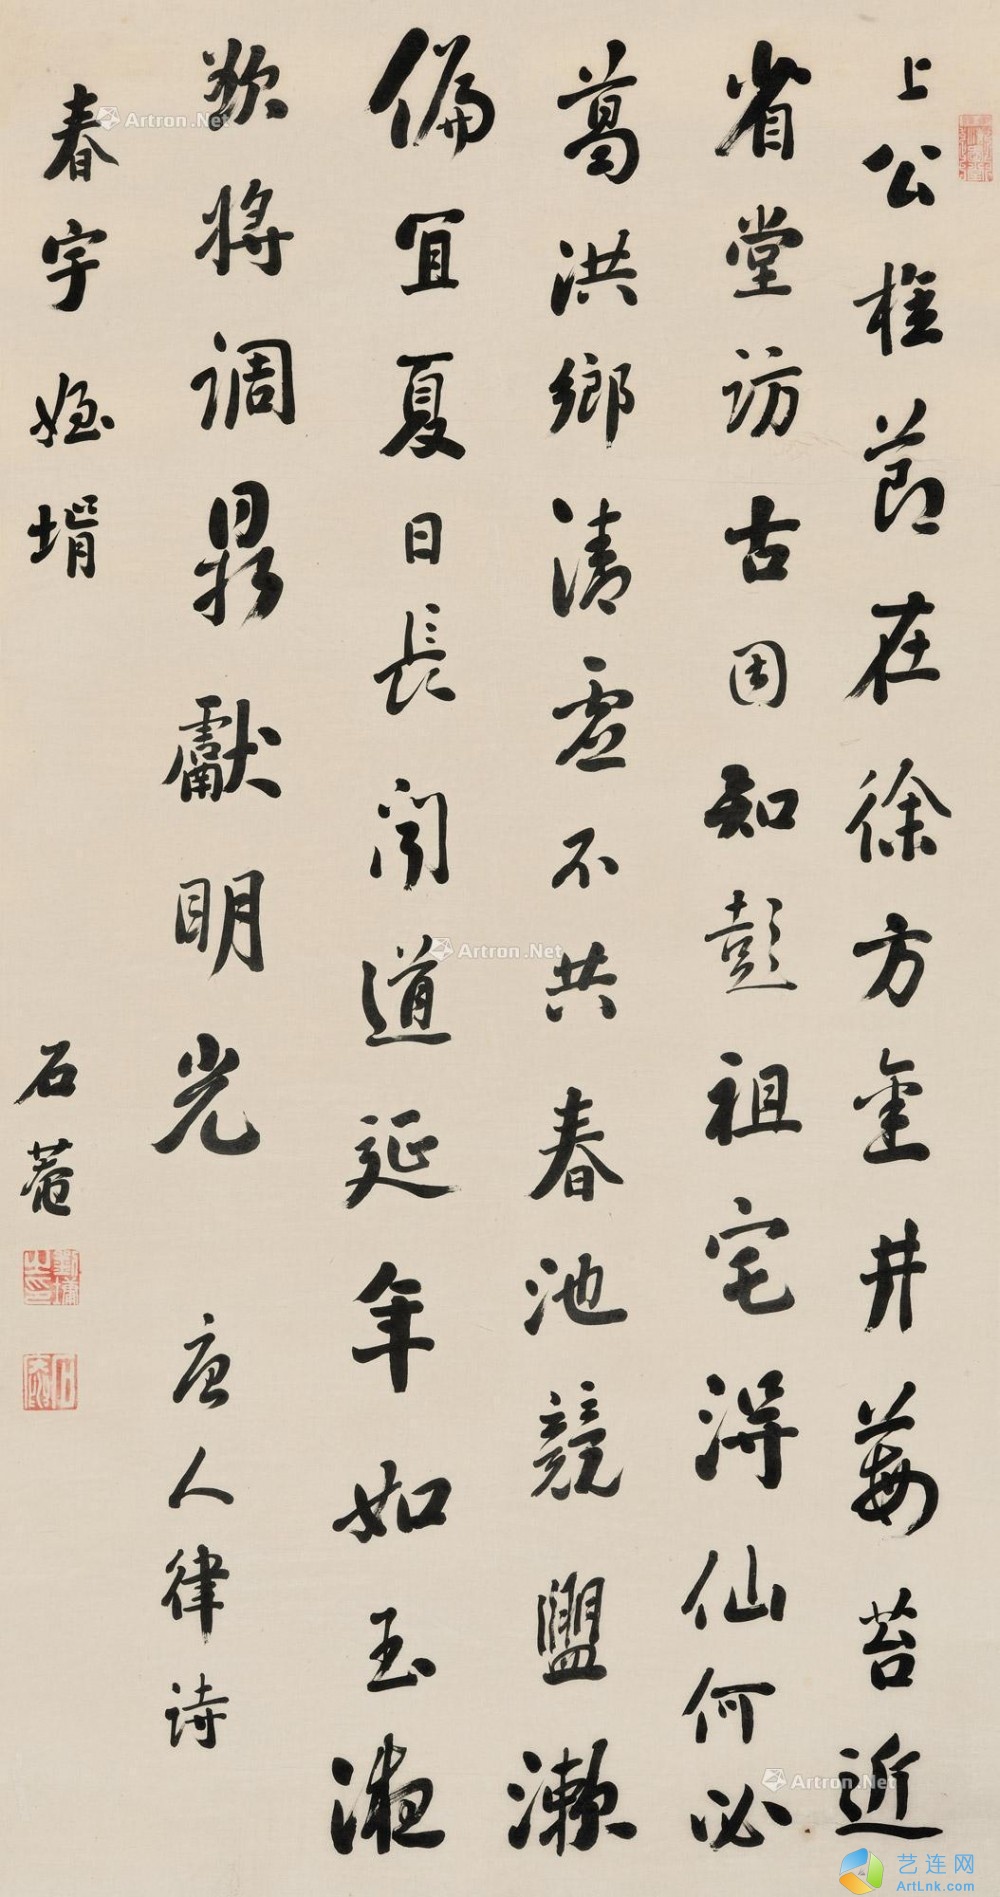 上公旌節在徐方金井莓苔近
省堂訪古因知彭祖宅得仙何必
葛洪鄉清虛不共春池競盥漱
偏宜夏日長聞道延年如玉液
欲將調鼎獻明光 唐人律詩
春宇姪壻 石菴
劉墉之印
Artron.Net
Artron.Net
Artron.Net
艺连网
ArtLnk.com